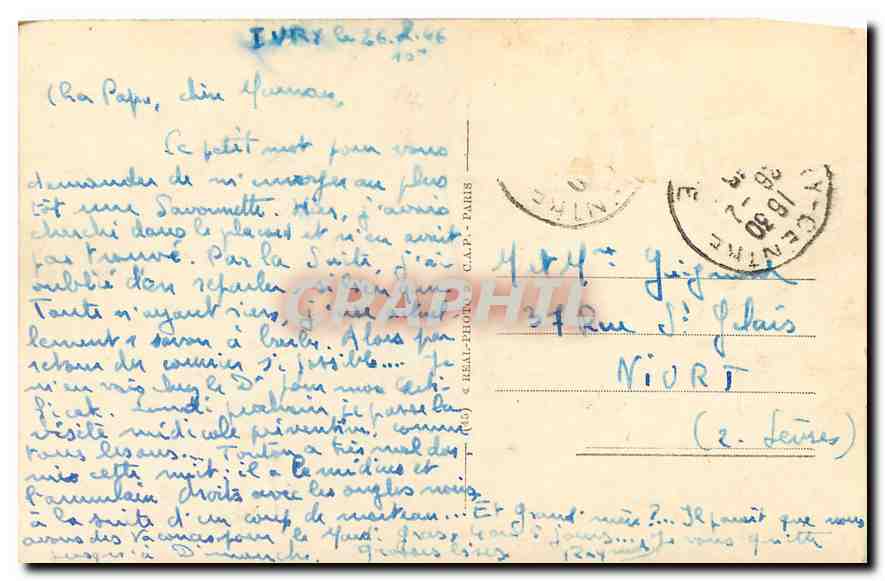 IVRY le 26.2.46
Cher Papa, chère Maman,
Ce petit mot pour vous
demander de m'envoyer au plus
tôt une Savonnette. Hier, j'avais
cherché dans le placard et n'en avait
pas trouvé. Par la Suite, j'ai
oublié d'en reparler
Tonton n'ayant rien, j'ai
lement 1 savon à barbe. Alors par
retour du courrier si possible.... Je
m'en vais chez le Dr pour mon Certi-
ficat. Lundi prochain, je passe la
visite médicale préventive, comme
tous les ans... Tonton a très mal dor-
mi cette nuit: il a le médius et
l'annulaire droits avec les ongles noirs,
à la suite d'un coup de marteau... Et Grand'mère?... Il paraît que nous
avons des Vacances pour le Mardi Gras, 4 ou 5 jours.... Je vous quitte
jusqu'à Dimanche. Grosses bises
Raymond
(45) REAL-PHOTO C.A.P. - PARIS
CRAPHTI
NTRE
Y-CENTRE
1530
26 - 2
M et Mme
37 Rue St Gelais
NIORT
(2. Sèvres)